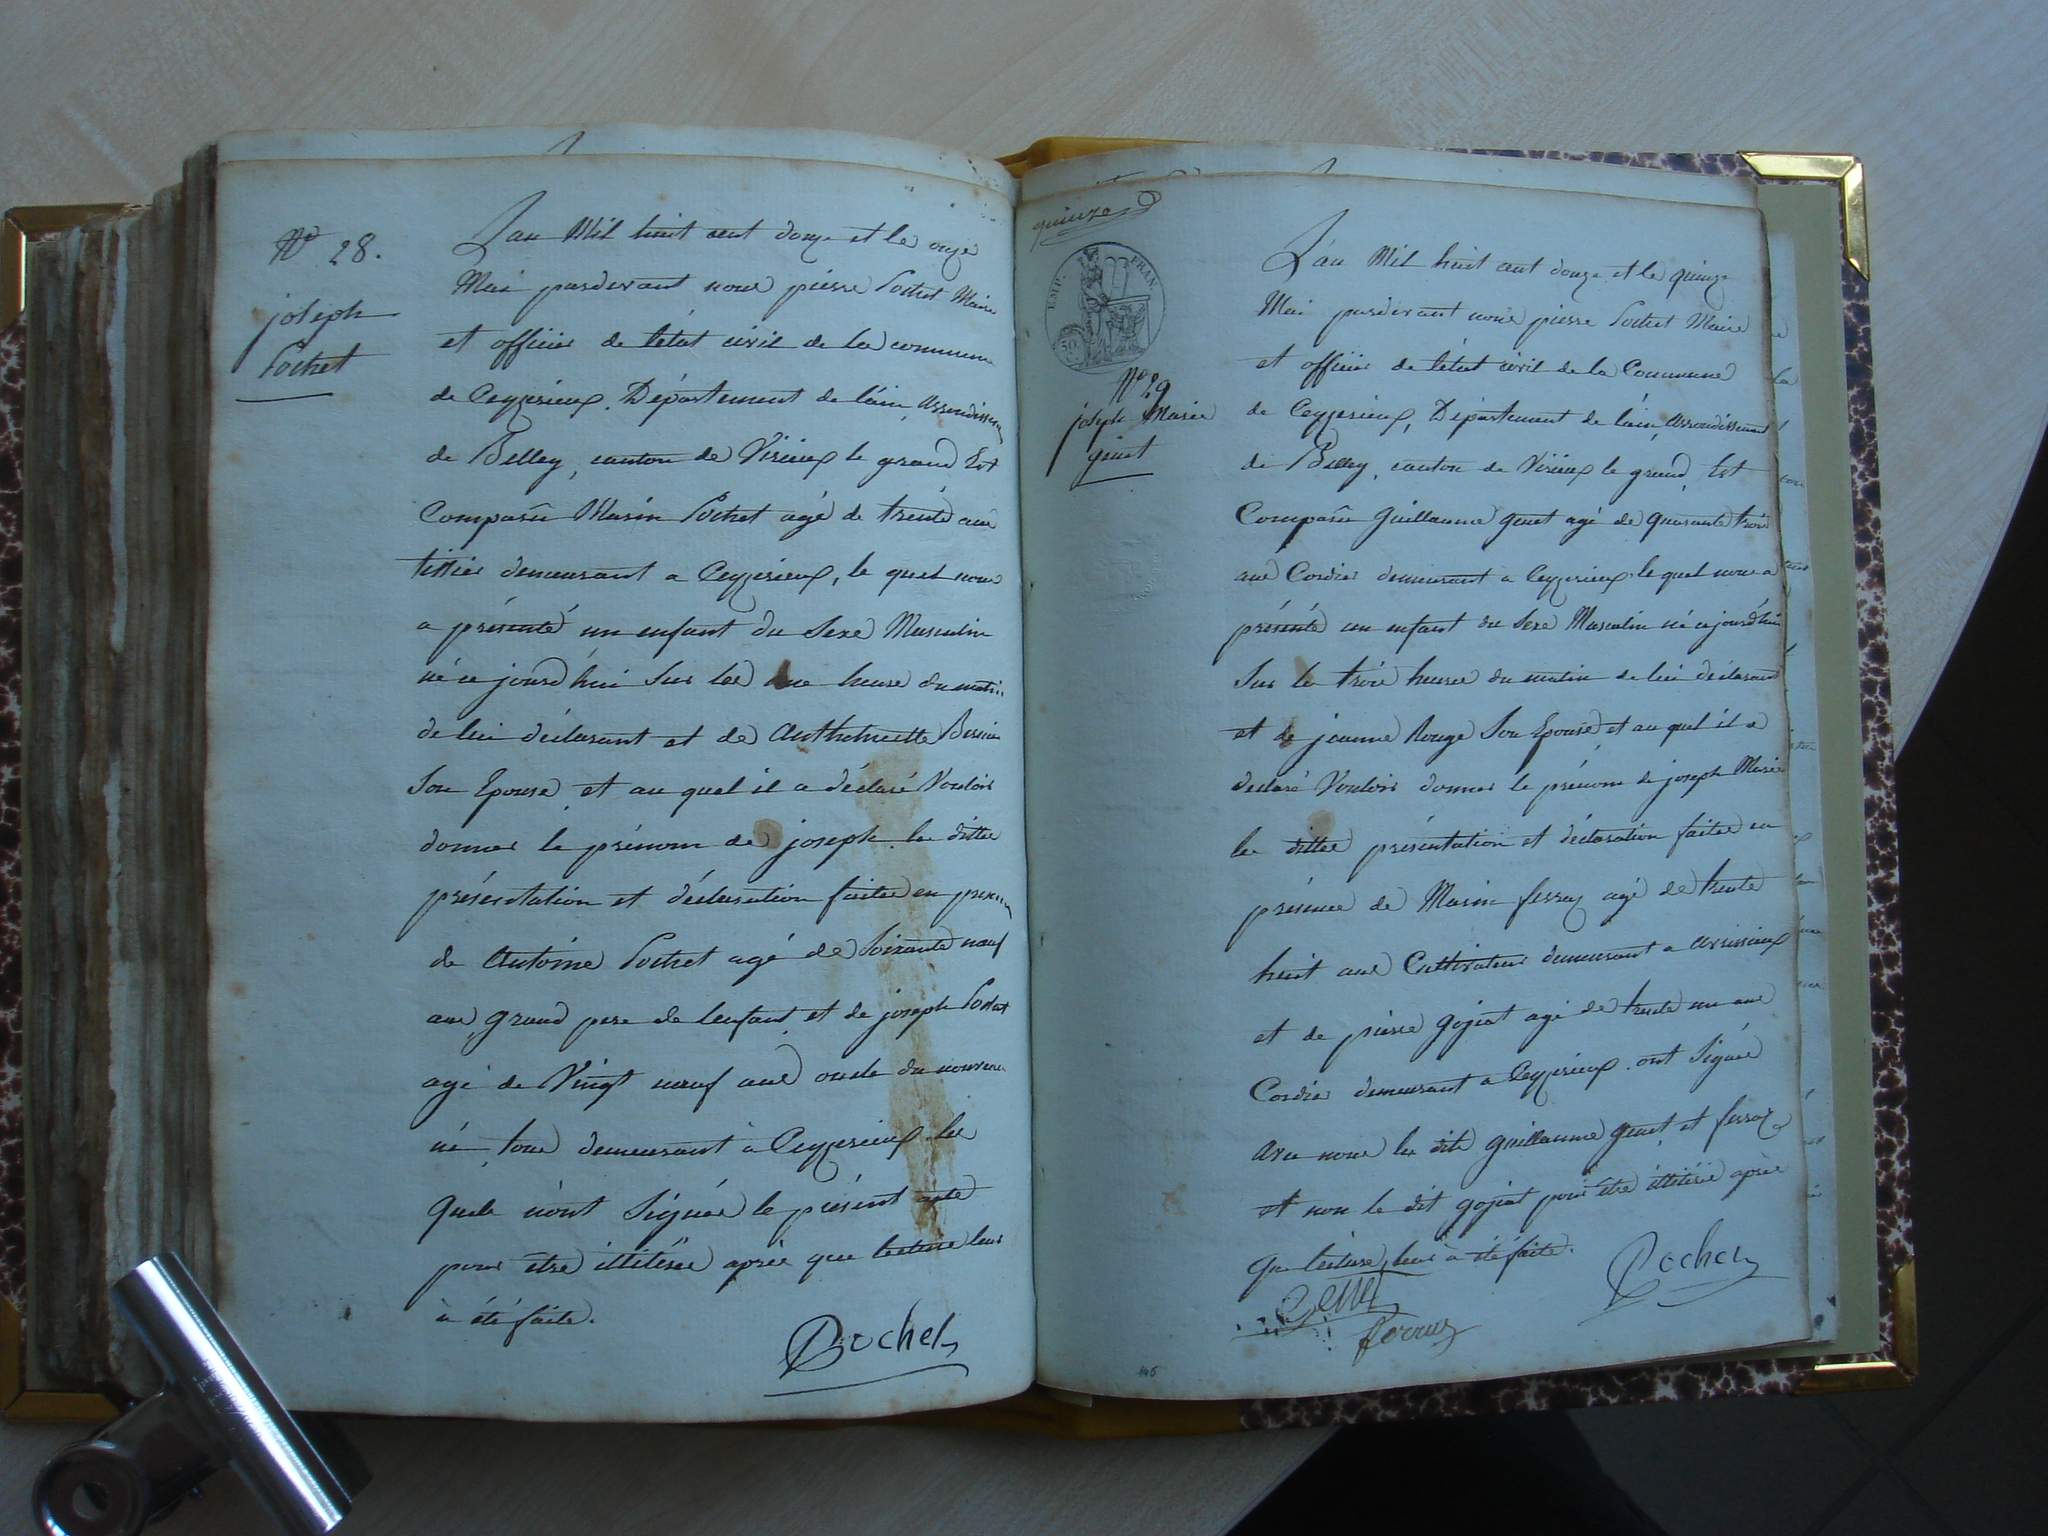 N° 28.
joseph
Pochet
L'an Mil huit cent douze et le onze
Mai pardevant nous pierre Pochet Maire
et officier de l'état civil de la commune
de Ceyzerieux, Département de l'ain, Arrondissem
de Belley, canton de Virieux le grand Est
Comparu Marin Pochet agé de trente ans
tissier demeurant a Ceyzerieux, le quel nous
a présenté un enfant du Sexe Masculin
né ce jourd'hui Sur les une heure du matin
de lui déclarant et de Anthelmette
Son Epouse, et au quel il a déclaré Vouloir
donner le prénom de joseph. les dittes
présentation et déclaration faites en presence
de Antoine Pochet agé de Soixante neuf
ans grand pere de l'enfant, et de joseph Pochet
agé de Vingt neuf ans oncle du nouveau
né, tous demeurant à Ceyzerieux. les
quels n'ont Signés le présent acte
pour être illitérés après que lecture leur
à été faite.
Pochet
quinze
EMP. FRAN.
50
N° 29
joseph Marie
genet
L'an Mil huit cent douze et le quinze
Mai pardevant nous pierre Pochet Maire
et officier de l'état civil de la Commune
de Ceyzerieux, Département de l'ain, Arrondissement
de Belley, canton de Virieux le grand, Est
Comparu guillaume genet agé de quarante trois
ans Cordier demeurant a Ceyzerieux le quel nous a
présenté un enfant du Sexe Masculin né ce jourd'hui
Sur les trois heures du matin de lui déclarant
et de jeanne Rouge Son Epouse et au quel il a
déclaré Vouloir donner le prénom de joseph Marie
les dittes présentation et déclaration faites en
présence de Marin ferroz agé de trente
huit ans Cultivateur demeurant a avrissieux
et de pierre gojiat agé de trente un ans
Cordier demeurant a Ceyzerieux. ont Signés
avec nous les dits guillaume genet, et ferroz
et non le dit gojiat pour être illitéré après
que lecture leur à été faite.
Genet
Pochet